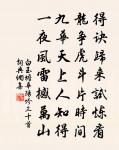 得訣歸來試煉看
龍爭虎斗片時間
九華天上人知得
一夜風雷撼萬山
白玉蟾華陽吟三十首
詞典網書